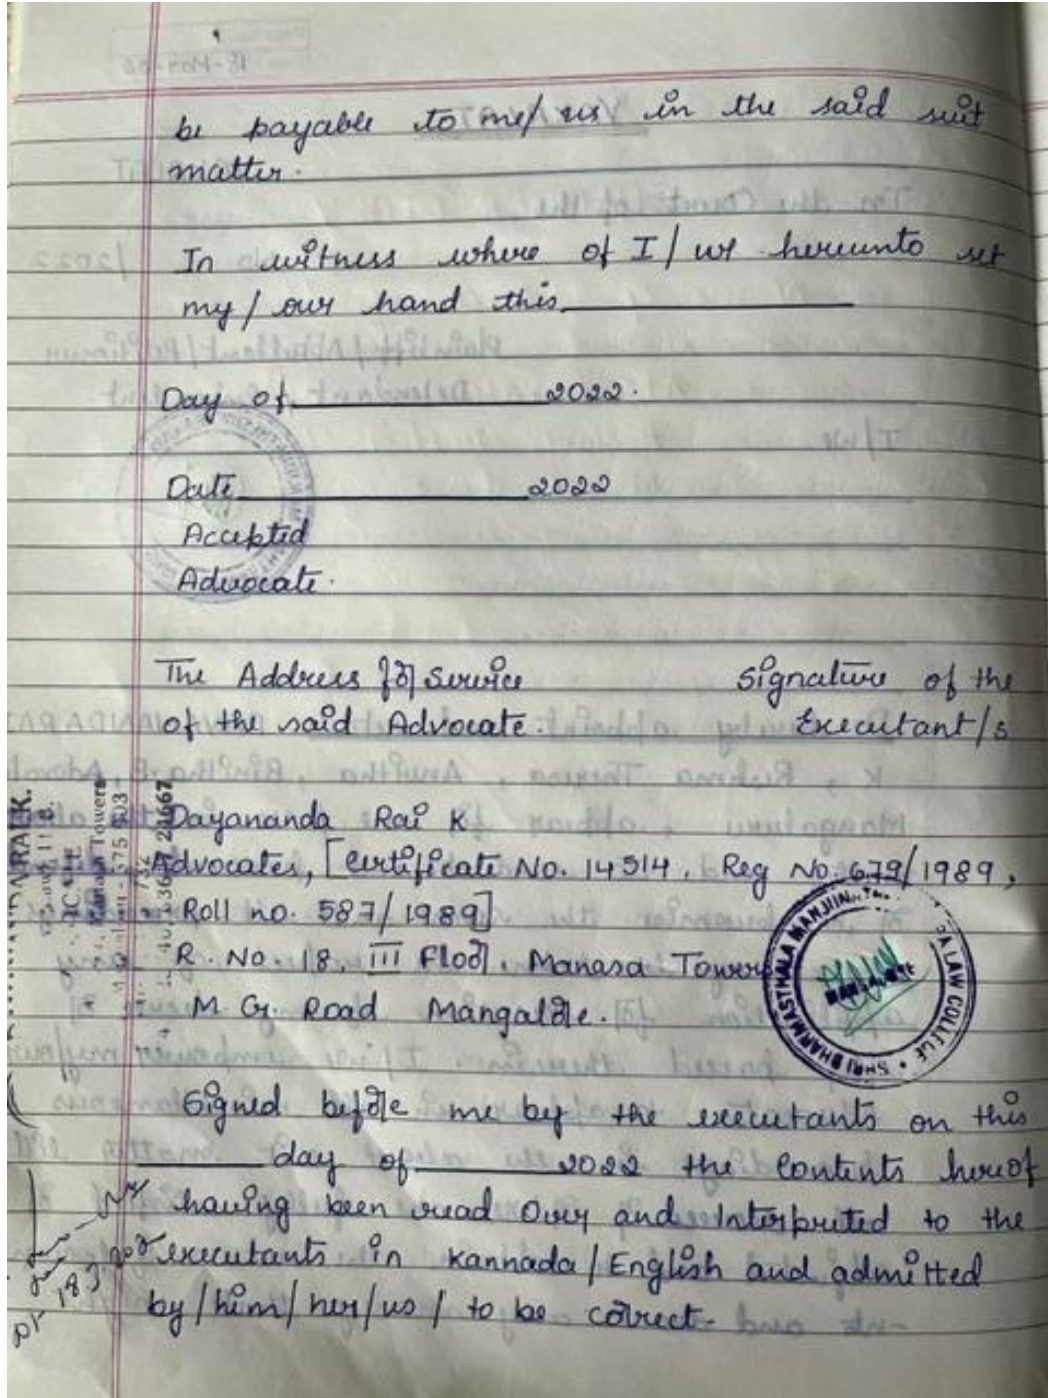 be payable to me/us in the said suit
matter.
In witness where of I/we hereunto set
my/our hand this
Day of 2022.
Date 2022
Accepted
Advocate.
The Address for Service Signature of the
of the said Advocate. Executant/s
Dayananda Rai K
Advocates, [Certificate No. 14514, Reg No. 679/1989,
Roll no. 587/1989]
R. No. 18, III Floor, Manasa Tower
M. G. Road Mangalore.
SHRI DHARMASTHALA MANJUN LAW COLLEGE
MANGALORE
Signed before me by the executants on this
day of 2022 the Contents hereof
having been read Over and Interpreted to the
executants in Kannada/English and admitted
by/him/her/us/ to be correct.
Towers